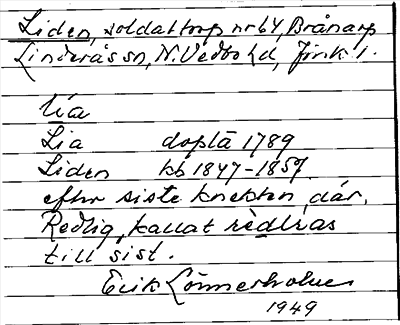 Liden, soldattorp nr 64, Brånarp
Linderås sn, N. Vedbo hd, Jönk l.
lia
Lia doptä 1789
Liden kb 1847-1857
efter siste knekten där,
Redlig, kallat rèdlias
till sist.
Erik Lönnerholm
1949